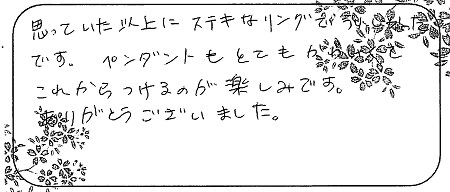 思っていた以上にステキなリングで
です。ペンダントもとてもかわ
これからつけるのが楽しみです。
ありがとうございました。